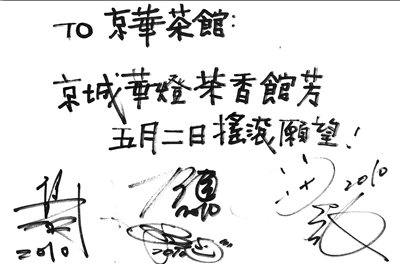 TO 京華茶館:
京城華燈茶香館芳
五月二日搖滾願望!
2010 2010 2010
2010